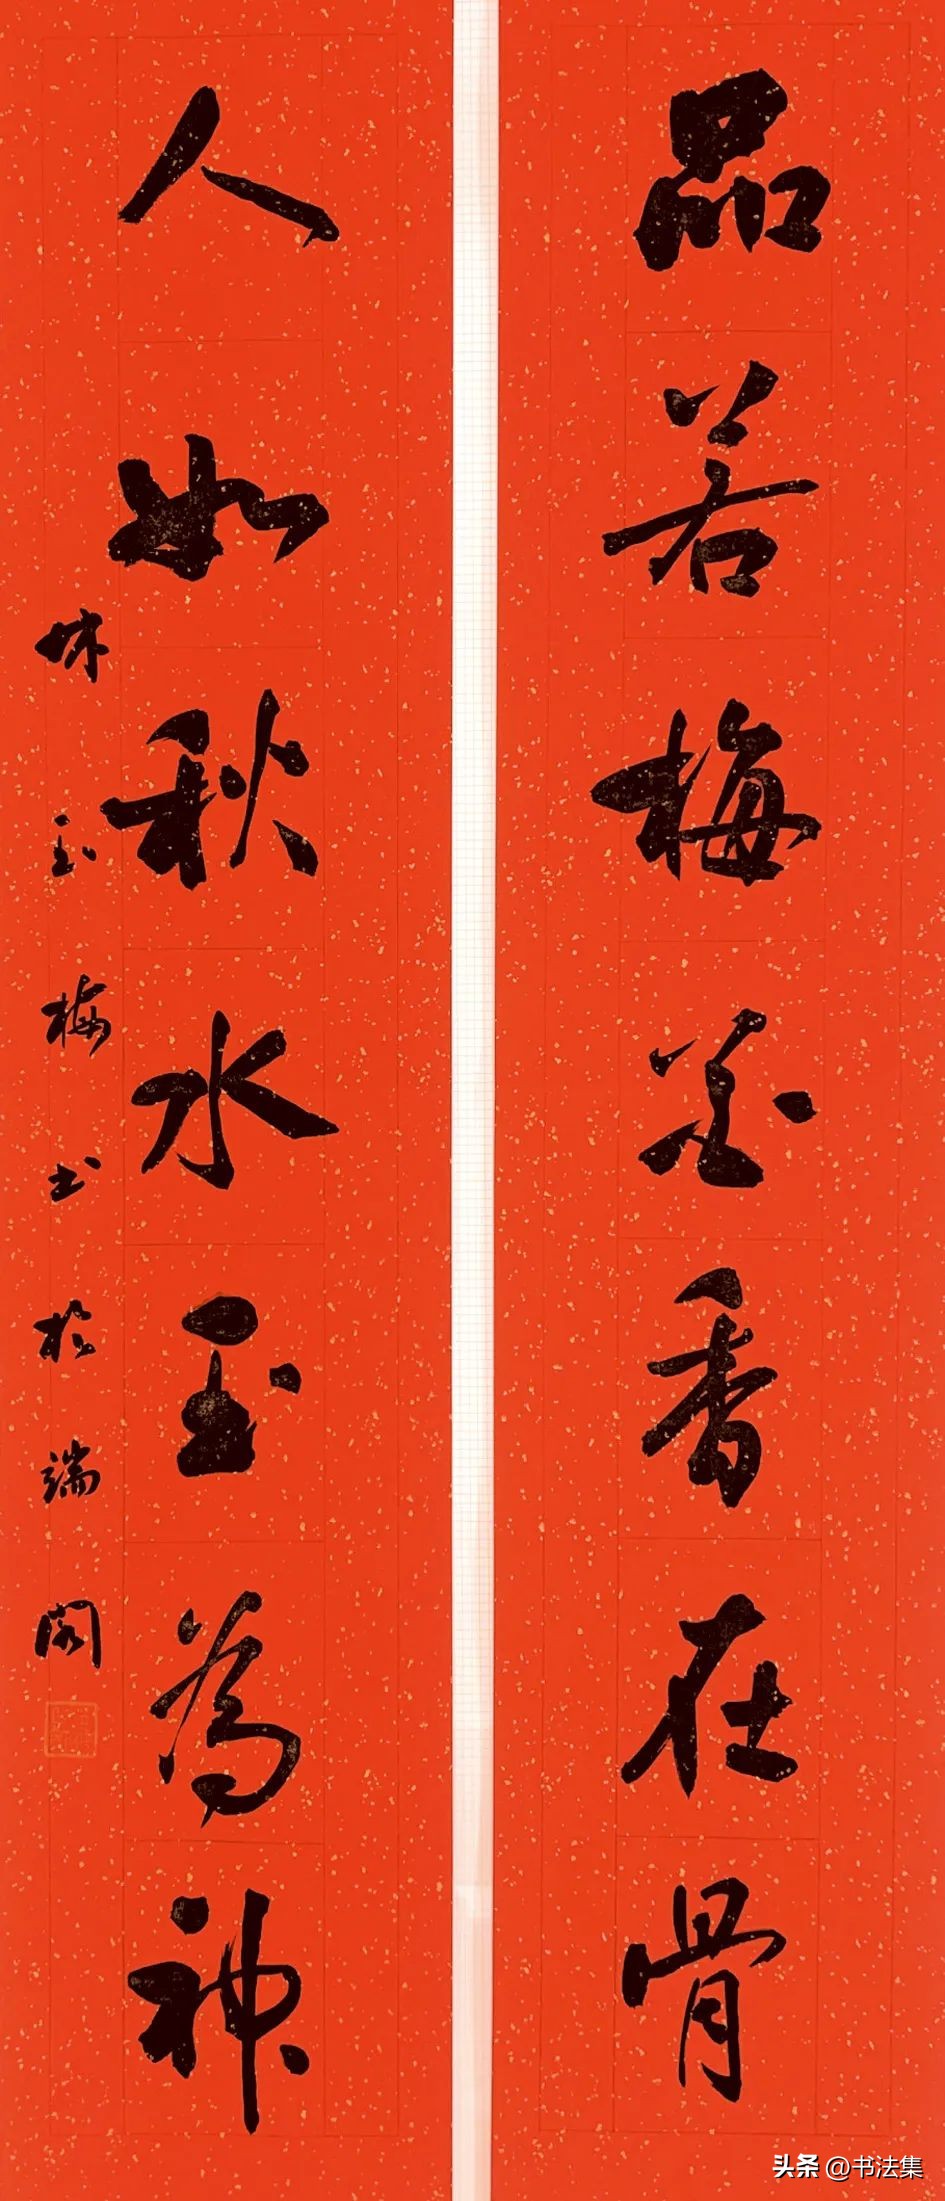 品若梅花香在骨
人如秋水玉為神
玉梅书於端阁
头条 @书法集